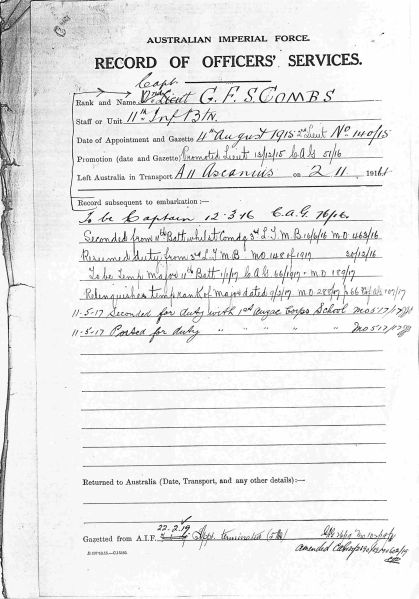 AUSTRALIAN IMPERIAL FORCE.
RECORD OF OFFICERS' SERVICES.
Capt.
Rank and Name 2nd Lieut G. F. S. COMBS
Staff or Unit 11th Inf Btn.
Date of Appointment and Gazette 4th August 1915 2nd Lieut No 140/15
Promotion (date and Gazette) Promoted Lieut 13/12/15 C A G 51/16
Left Australia in Transport A 11 Ascanius on 2 11, 191
Record subsequent to embarkation:—
To be Captain 12-3-16 C.A.G. 76/16
Seconded from 11th Batt whilst Comdg 3rd L.T.M.B 16/6/16 M.O 463/16
Resumed duty from 3rd L.T.M.B M.O 148 of 1917 30/12/16
To be Temp Major 11th Batt 1/1/17 C A G 66/1917 M.O 189/17
Relinquishes temp rank of Major dated 9/2/17 M O 288/17 107/17
11-5-17 Seconded for duty with 1st Anzac Corps School M O 517/17
11-5-17 Posted for duty " " " " " M O 517/17
Returned to Australia (Date, Transport, and any other details):—
22.2.19
Gazetted from A.I.F. Appt. terminated
amended